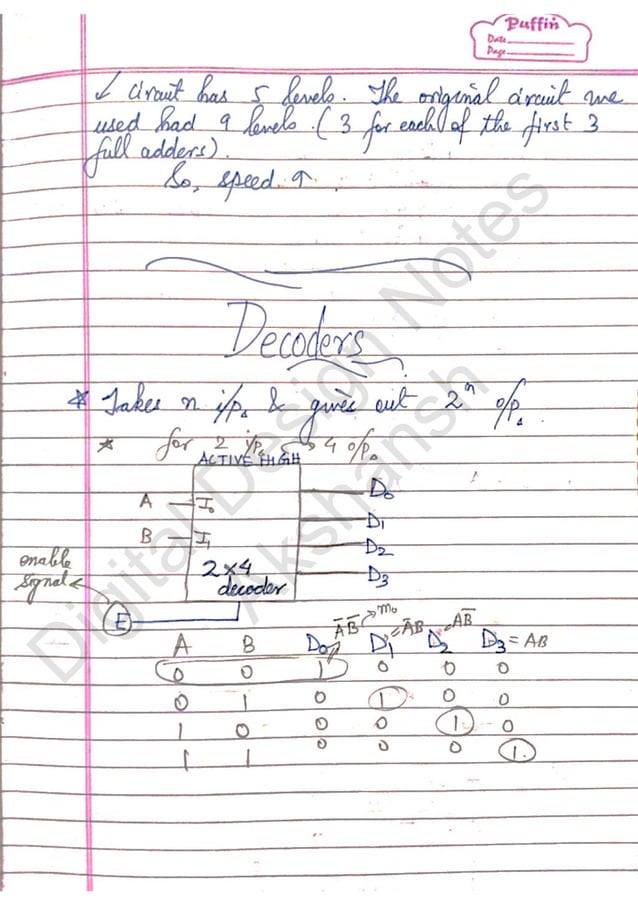 Puffin
Date
Page
✓ circuit has 5 levels. The original circuit we
used had 9 levels. (3 for each of the first 3
full adders).
So, speed ↑
Decoders
* Takes n i/ps & gives out 2ⁿ o/ps
* for 2 i/ps → 4 o/ps
ACTIVE HIGH
A I₀ D₀
B I₁ D₁
D₂
2×4 D₃
decoder
enable
signal
E
A̅B̅ → m₀
A B D₀ D₁ = A̅B D₂ = AB̅ D₃ = AB
0 0 1 0 0 0
0 1 0 1 0 0
1 0 0 0 1 0
1 1 0 0 0 1
Digital Design Notes
Akshansh